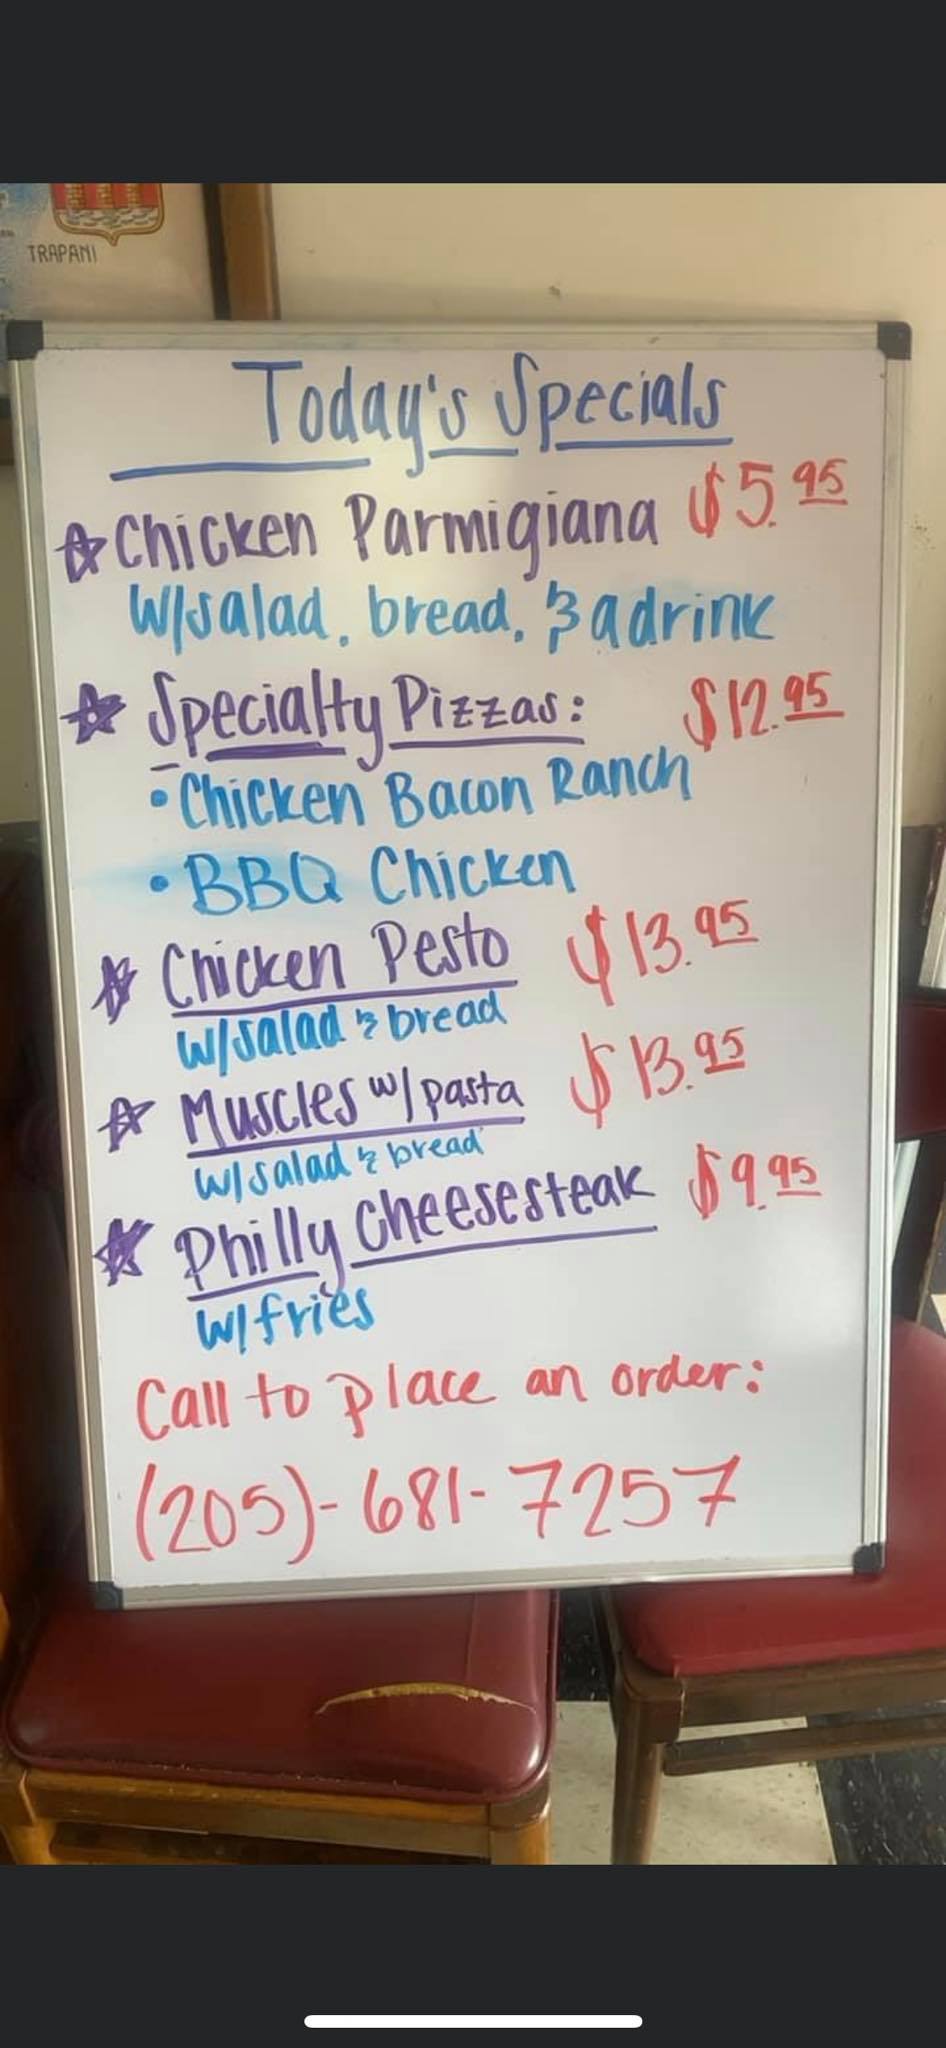 TRAPANI
Today's Specials
Chicken Parmigiana $5.95
w/salad, bread, & a drink
Specialty Pizzas: $12.95
• Chicken Bacon Ranch
• BBQ Chicken
Chicken Pesto $13.95
w/salad & bread
Muscles w/ pasta $13.95
w/salad & bread
Philly Cheesesteak $9.95
w/fries
Call to place an order:
(205)-681-7257